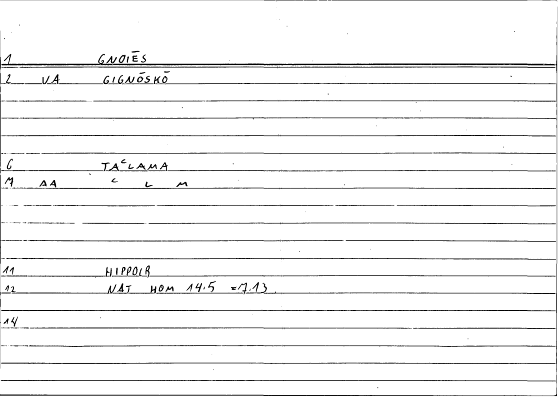 1 GNOIĒS
2 VA GIGNŌSKŌ
6 TAᶜLAMA
M AA ᶜ L M
11 HIPPOCR
12 NAT HOM 14.5 =7.13
14